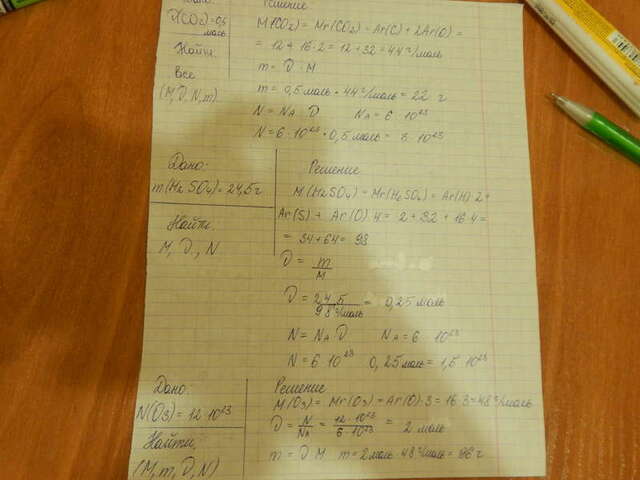 Решение
ν(CO₂)=0,5 моль
M(CO₂) = Mr(CO₂) = Ar(C) + 2Ar(O) =
= 12 + 16·2 = 12 + 32 = 44 г/моль
Найти
все
(M, ν, N, m)
m = ν · M
m = 0,5 моль · 44 г/моль = 22 г
N = NA · ν NA = 6 · 10²³
N = 6 · 10²³ · 0,5 моль = 3 · 10²³
Дано:
m(H₂SO₄) = 24,5 г
Найти
M, ν, N
Решение
M(H₂SO₄) = Mr(H₂SO₄) = Ar(H)·2+
Ar(S) + Ar(O)·4 = 2 + 32 + 16·4 =
= 34 + 64 = 98
ν = m/M
ν = 24,5 / 98 г/моль = 0,25 моль
N = NA · ν NA = 6 · 10²³
N = 6·10²³ 0,25 моль = 1,5 · 10²³
Дано:
N(O₃) = 12·10²³
Найти
(M, m, ν, N)
Решение
M(O₃) = Mr(O₃) = Ar(O)·3 = 16·3 = 48 г/моль
ν = N/NA = 12·10²³ / 6·10²³ = 2 моль
m = ν · M m = 2 моль · 48 г/моль = 96 г